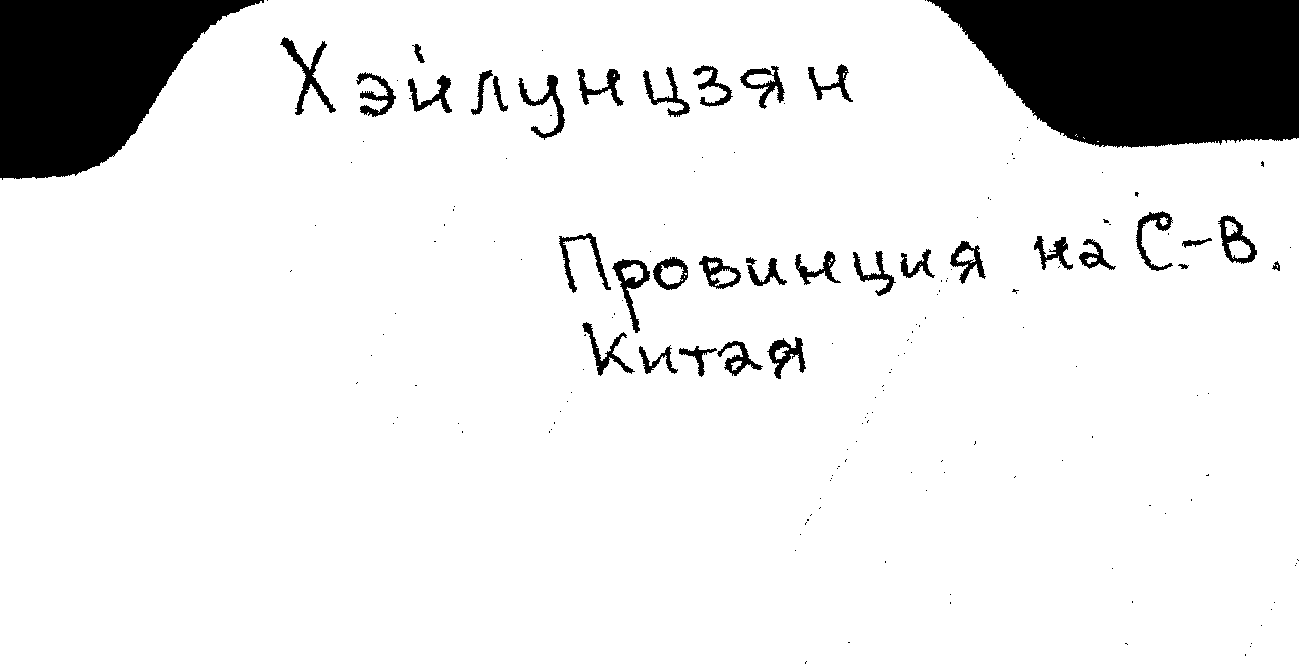 Хэйлунцзян
Провинция на С.-В.
Китая